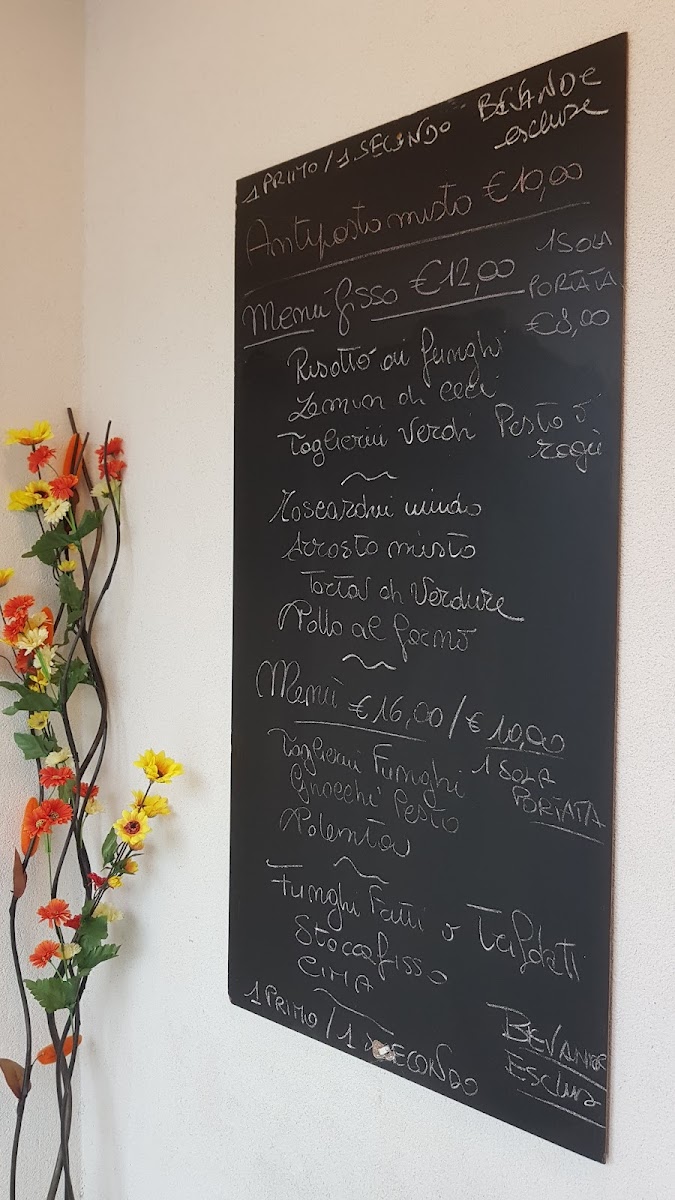 1 PRIMO / 1 SECONDO BEVANDE
escluse
Antipasto misto €10,00
Menù fisso €12,00 1 SOLA
PORTATA
€8,00
Risotto ai funghi
Zemin di ceci
Taglierini Verdi Pesto o
ragù
Moscardini umido
Arrosto misto
Torta di Verdure
Pollo al forno
Menù €16,00 / €10,00
1 SOLA
PORTATA
Taglierini Funghi
Gnocchi Pesto
Polenta
Funghi Fritti o Trifolati
Stoccafisso
CIMA
1 PRIMO / 1 SECONDO BEVANDE
ESCLUSE